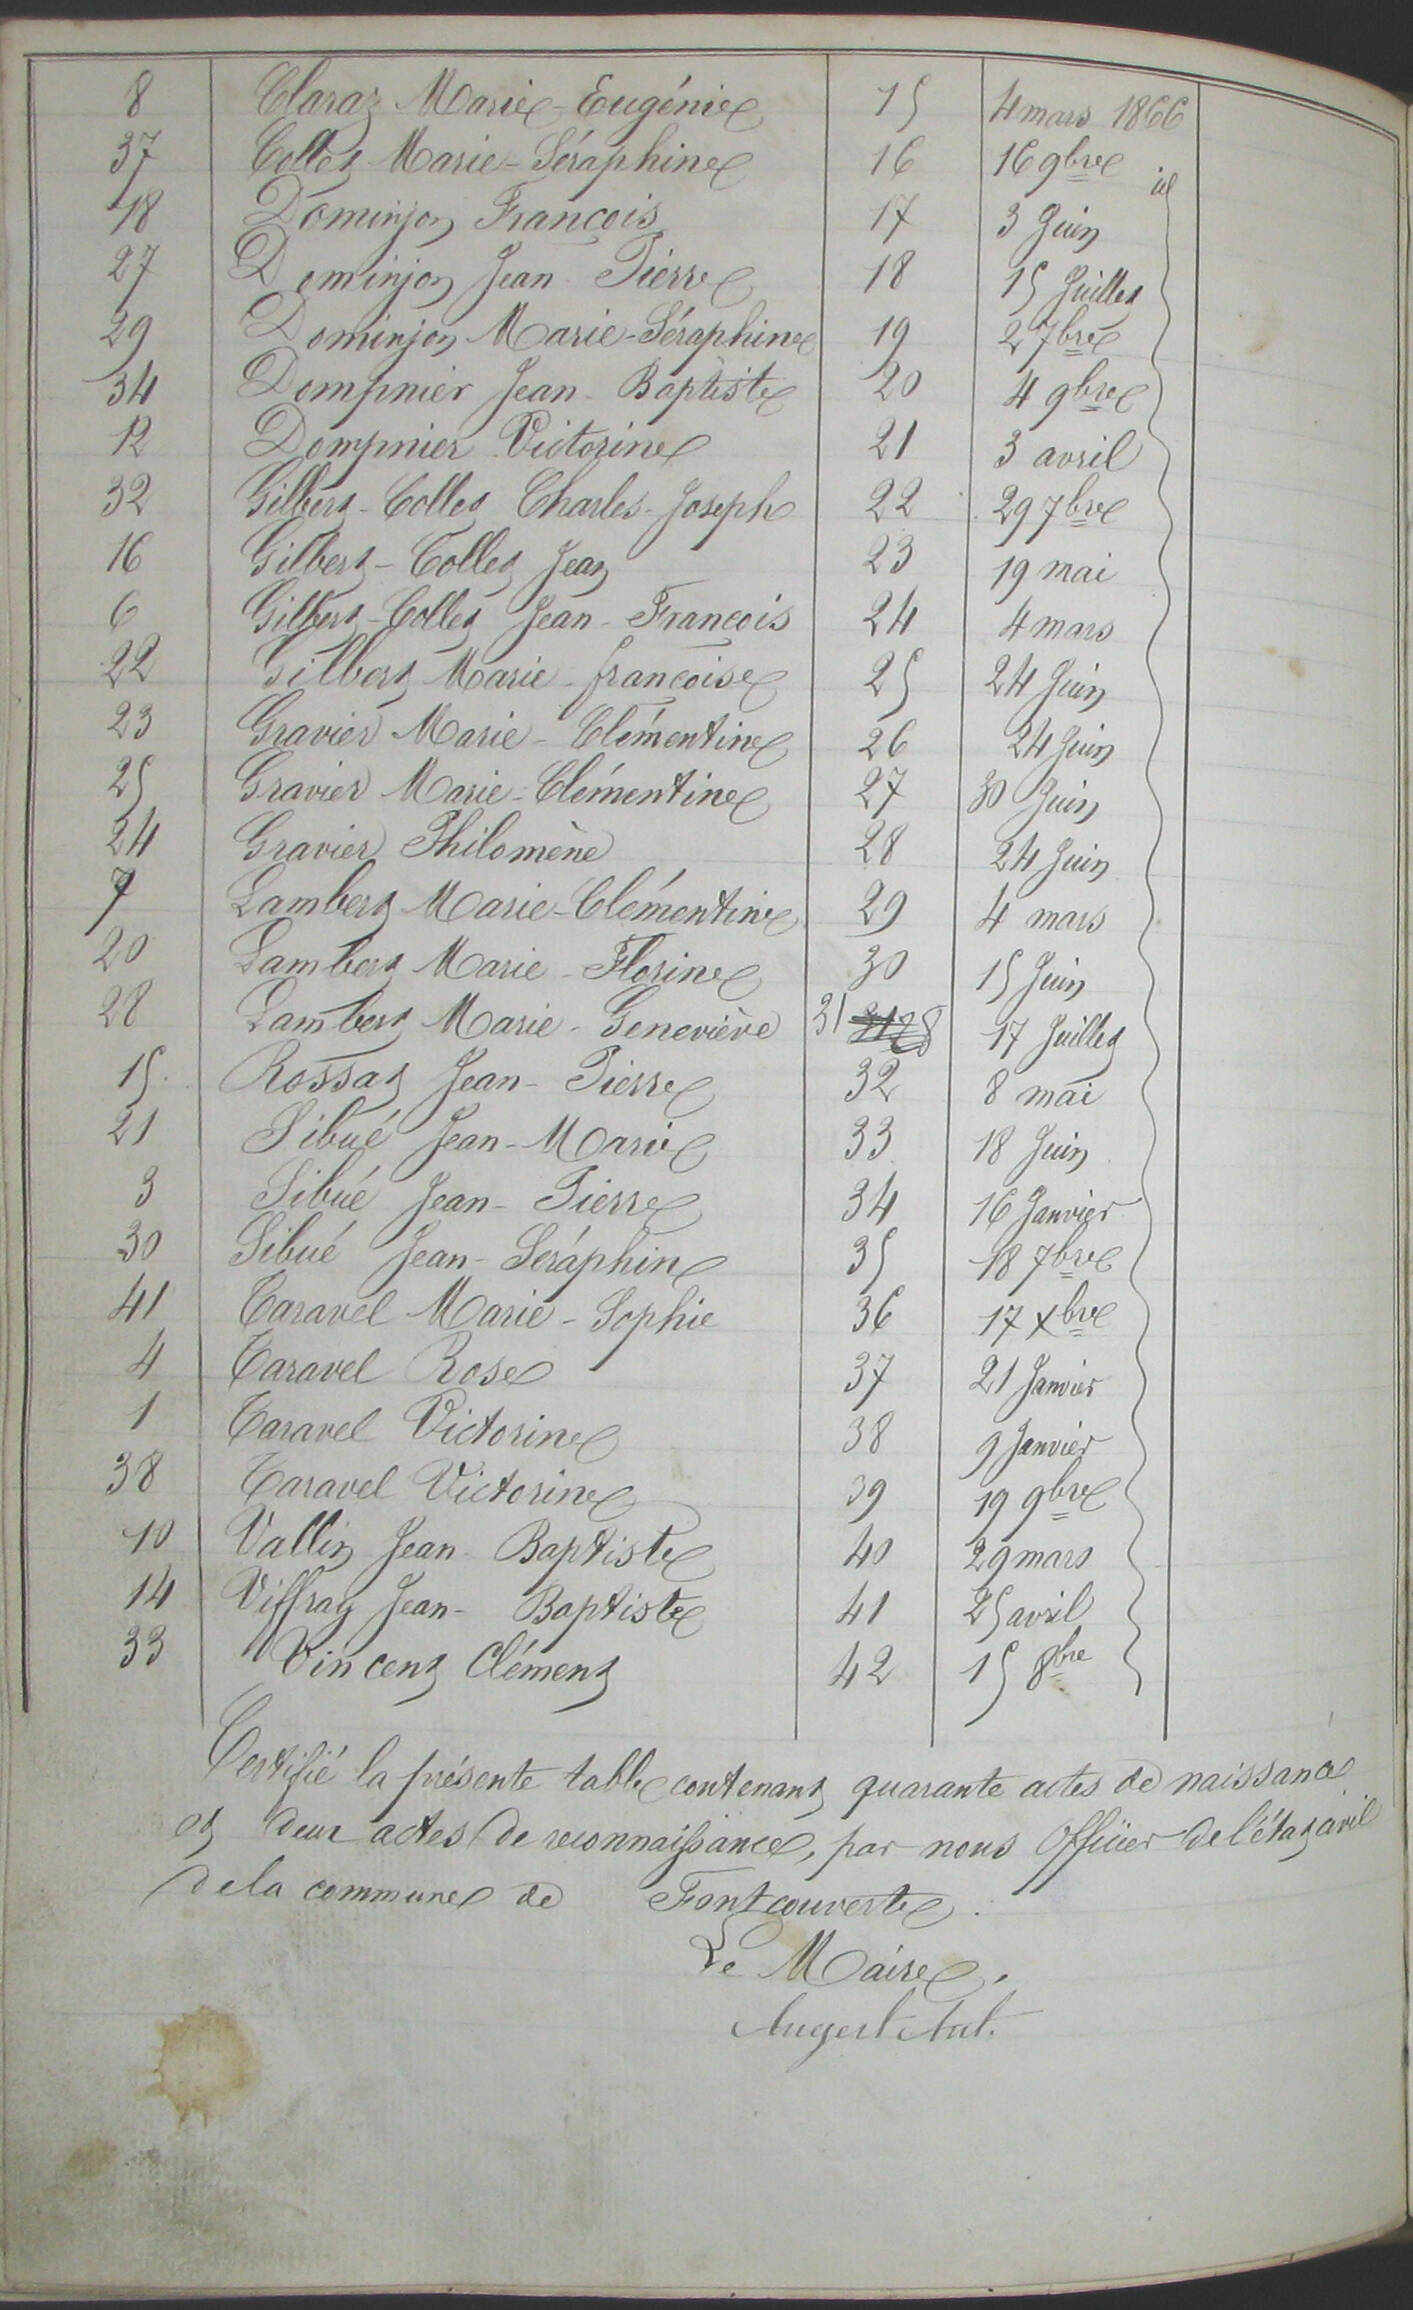 8 Claraz Marie-Eugénie 15 4 mars 1866
37 Collet Marie-Séraphine 16 16 9bre id
18 Dominjon François 17 3 Juin
27 Dominjon Jean Pierre 18 15 Juillet
29 Dominjon Marie-Séraphine 19 2 7bre
34 Dompnier Jean-Baptiste 20 4 9bre
12 Dompnier Victorine 21 3 avril
32 Gilbert-Collet Charles-Joseph 22 29 7bre
16 Gilbert-Collet Jean 23 19 mai
6 Gilbert-Collet Jean-François 24 4 mars
22 Gilbert Marie-françoise 25 24 Juin
23 Gravier Marie-Clémentine 26 24 Juin
25 Gravier Marie-Clémentine 27 30 Juin
24 Gravier Philomène 28 24 Juin
7 Lambert Marie-Clémentine 29 4 mars
20 Lambert Marie-Florine 30 15 Juin
28 Lambert Marie-Geneviève 31 17 Juillet
15 Rossat Jean-Pierre 32 8 mai
21 Sibué Jean-Marie 33 18 Juin
3 Sibué Jean-Pierre 34 16 Janvier
30 Sibué Jean-Séraphin 35 18 7bre
41 Taravel Marie-Sophie 36 17 xbre
4 Taravel Rose 37 21 Janvier
1 Taravel Victorine 38 9 Janvier
38 Taravel Victorine 39 19 9bre
10 Vallin Jean-Baptiste 40 29 mars
14 Viffray Jean-Baptiste 41 25 avril
33 Vincent Clément 42 15 8bre
Certifié la présente table contenant quarante actes de naissance
et deux actes de reconnaissance, par nous Officier de l'état civil
de la commune de Fontcouverte.
Le Maire,
Augert Ant.